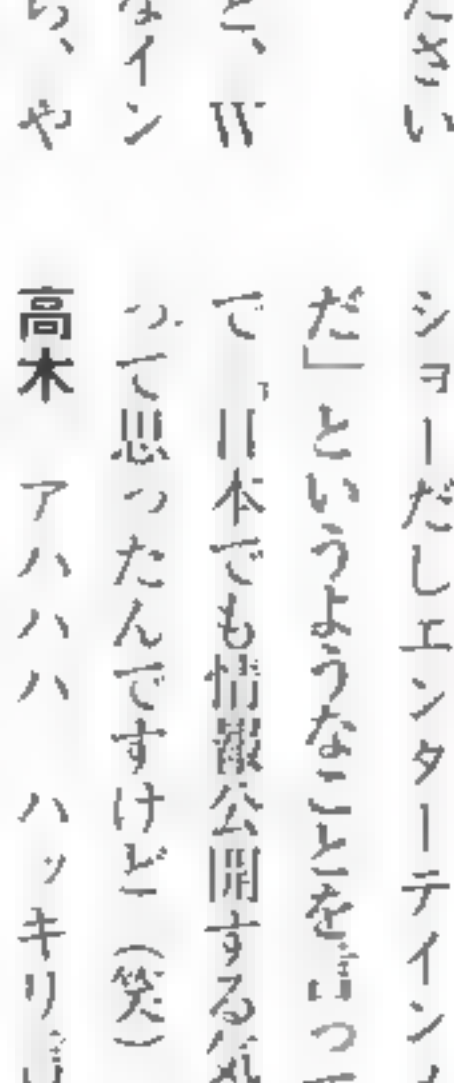 さい
と、W
なイン
ら、や
ショーだしエンターテイン
だ」というようなことを言っ
で「日本でも情報公開する気
って思ったんですけど(笑)
高木 アハハハ ハッキリ言